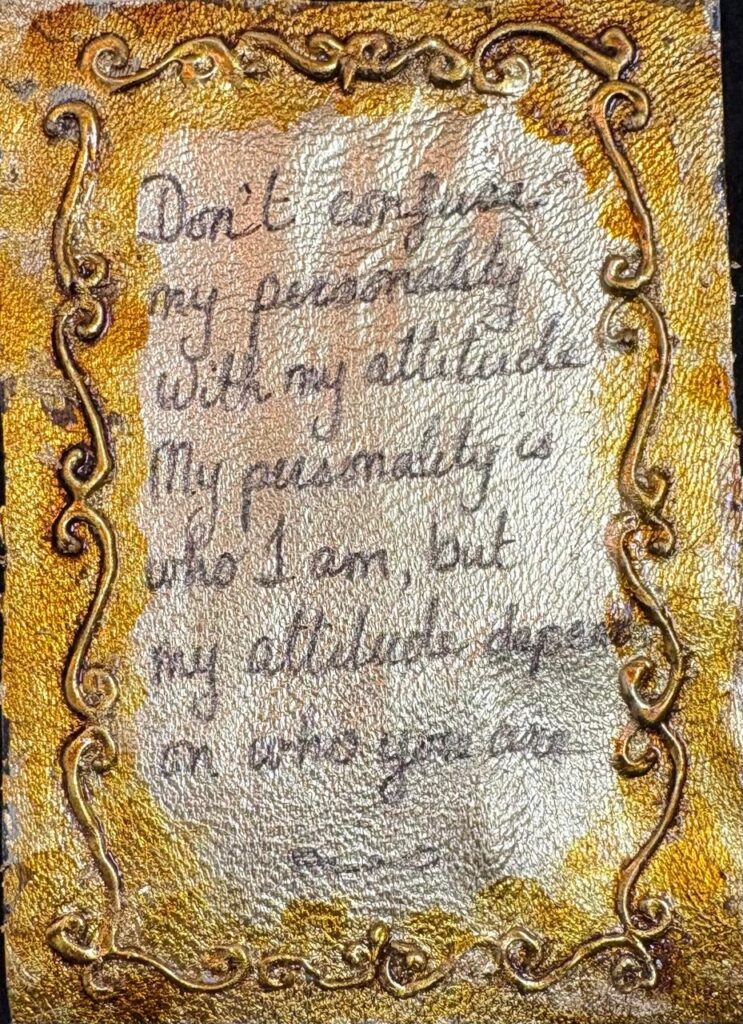 Don't confuse
my personality
with my attitude
My personality is
who I am, but
my attitude depend
on who you are